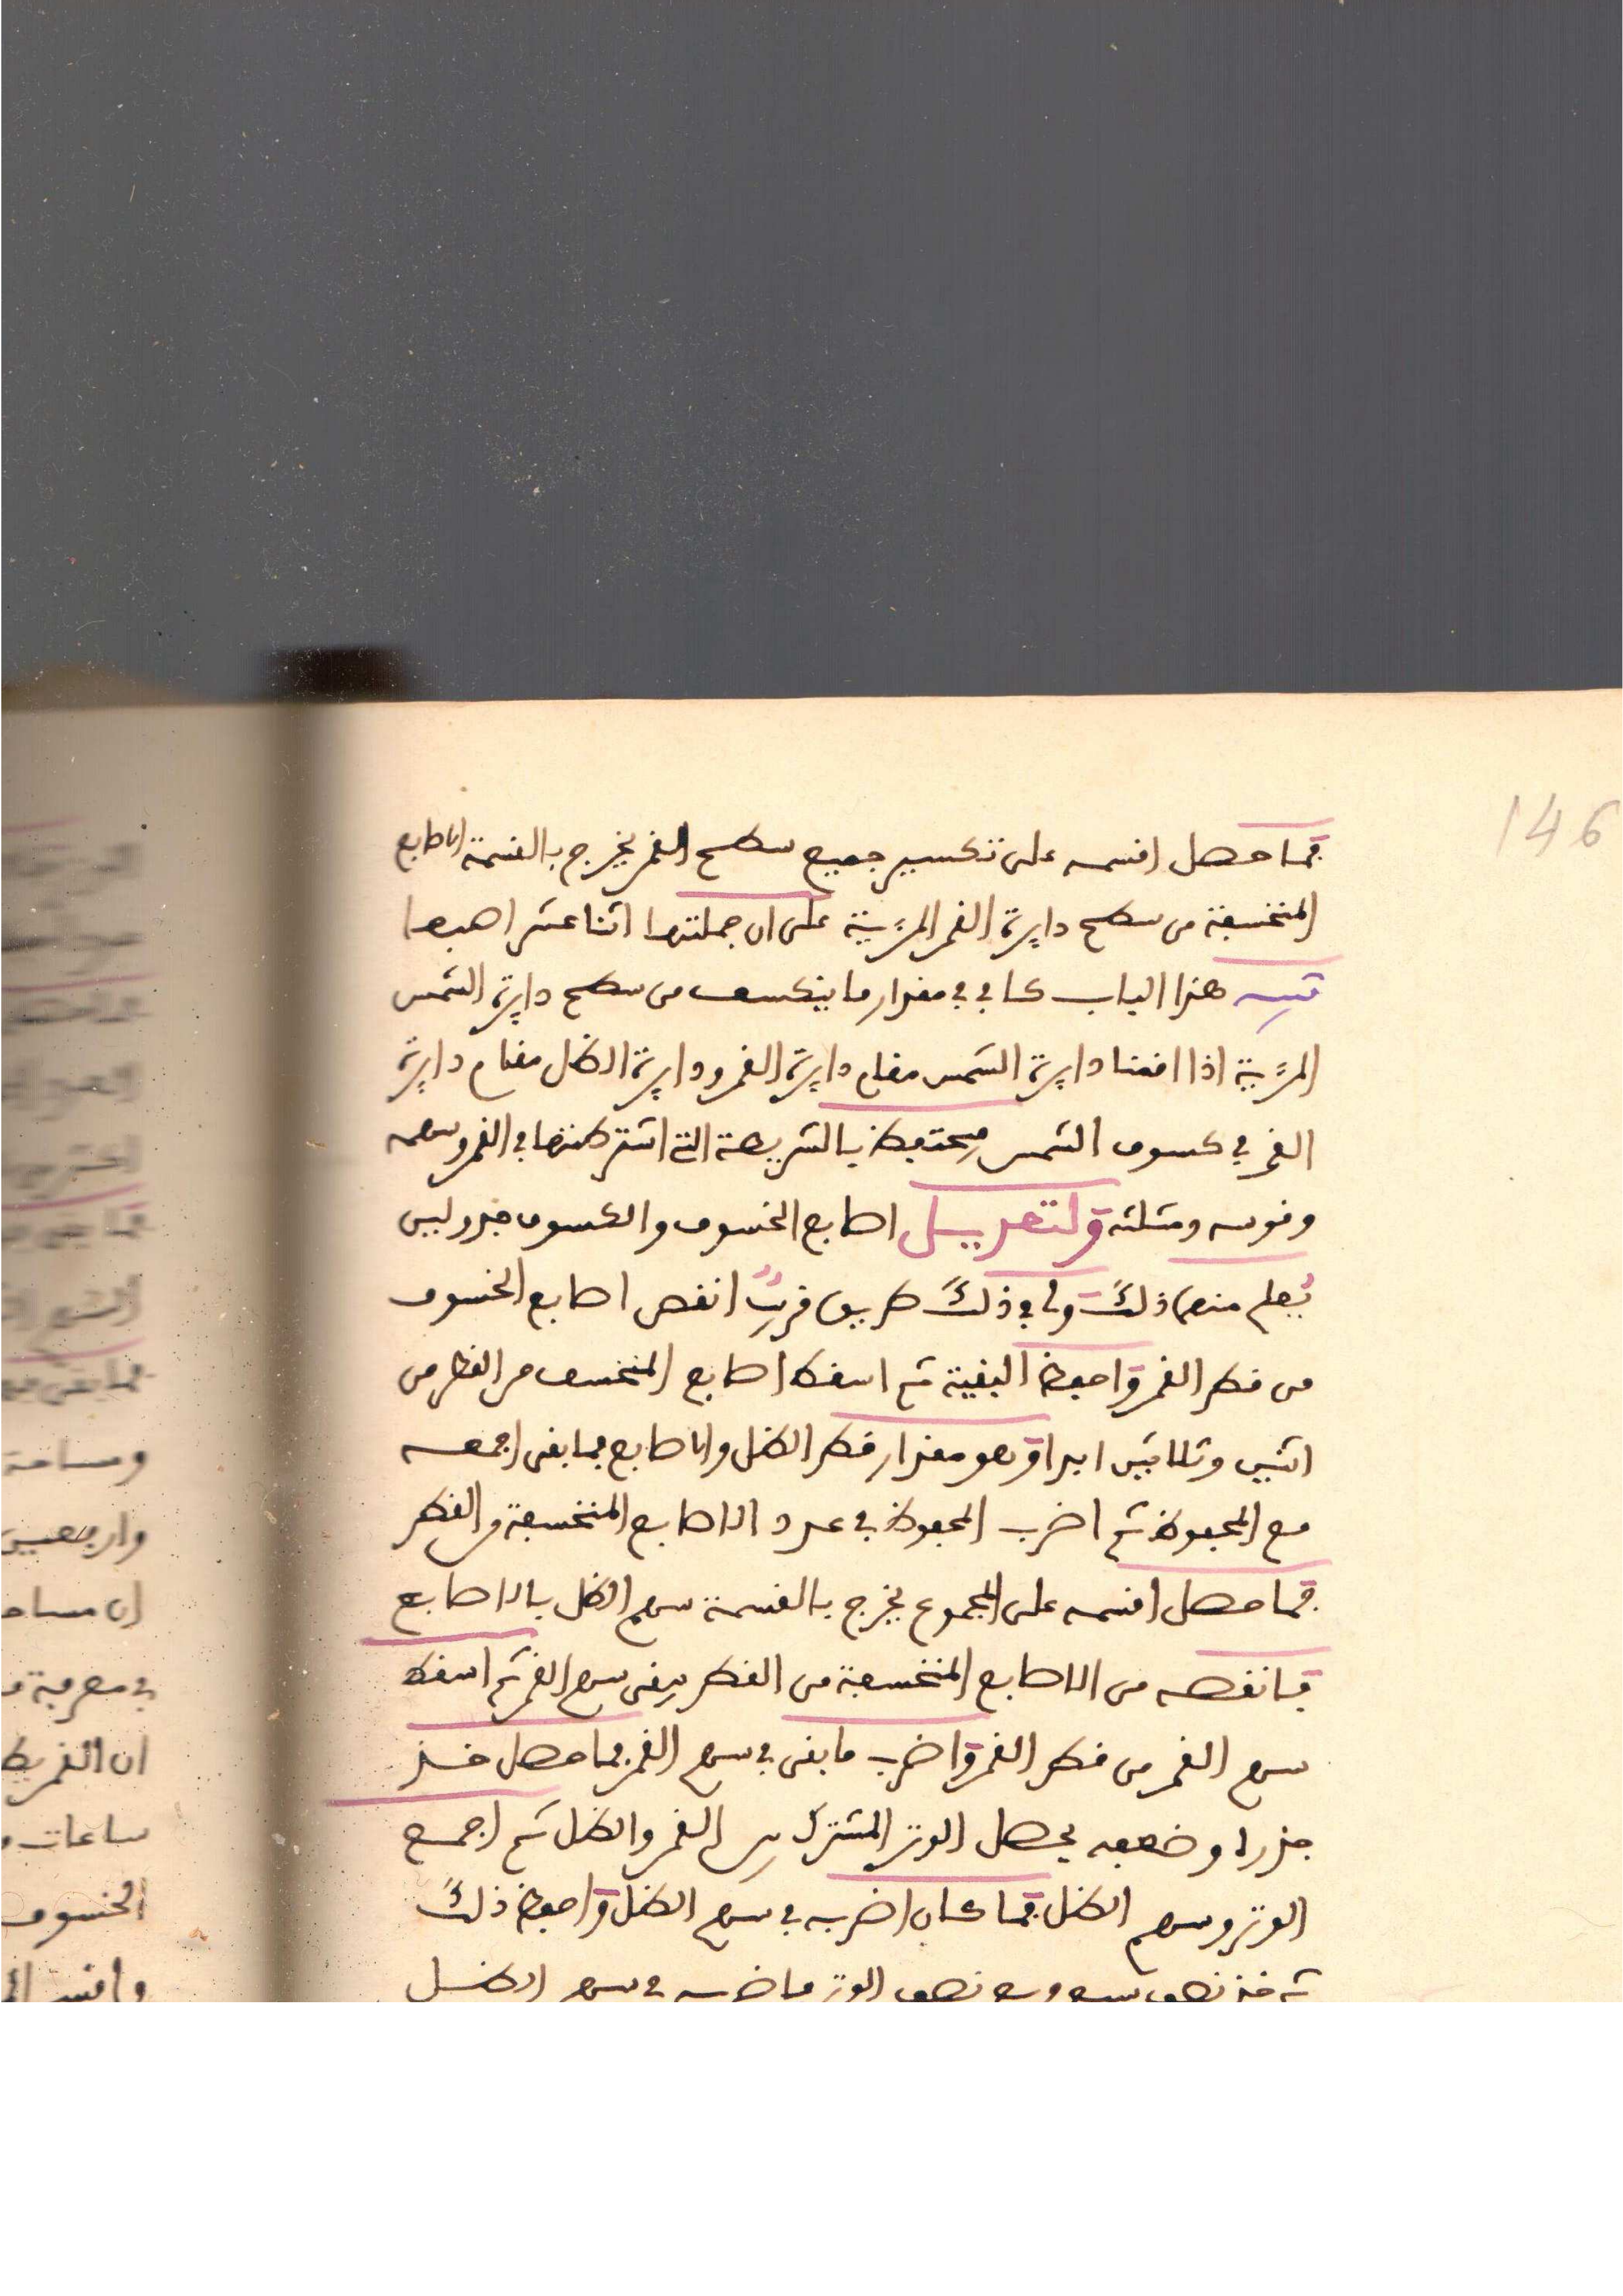 146
فما حصل اقسمه على تكسير جميع سطح القمر يخرج بالقسمة الاصابع
المنخسفة من سطح دايرة القمر المرءية على ان جملتها اثنا عشر اصبعا
تنبيه هذا الباب كاف في مقدار ما ينكسف من سطح دايرة الشمس
المرءية اذا اقمنا دايرة الشمس مقام دايرة القمر ودايرة الظل مقام دايرة
القمر في كسوف الشمس فيحتفظ بالشريطة التي اشترطتها في القمر وسهمه
وقوسه ومثلثه ولتعديل اصابع الخسوف والكسوف جدول ليس
يعلم منها ذلك ولي في ذلك طريق قريب انقص اصابع الخسوف
من قطر القمر واحفظ البقية ثم اسقط اصابع المنخسف من القطر من
اثنين وثلاثين ابدا وهو مقدار قطر الظل والاصابع فما بقى اجمعه
مع المحفوظ ثم اضرب المحفوظ في عدد الاصابع المنخسفة من القطر
فما حصل اقسمه على المجموع يخرج بالقسمة سهم الظل بالاصابع
فانقصه من الاصابع المنخسفة من القطر يبقى سهم القمر ثم اسقط
سهم القمر من قطر القمر واضرب ما بقى في سهم القمر فما حصل خذ
جذره وضعفه يحصل الوتر المشترك بين القمر والظل ثم اجمع
الوتر وسهم الظل فما كان اضربه في سهم الظل واحفظ ذلك
ثم خذ نصف نصف الوتر في سهم الظل
ومساحة
ان مساحة
في معرفة
ان القمر
ساعات
الخسوف